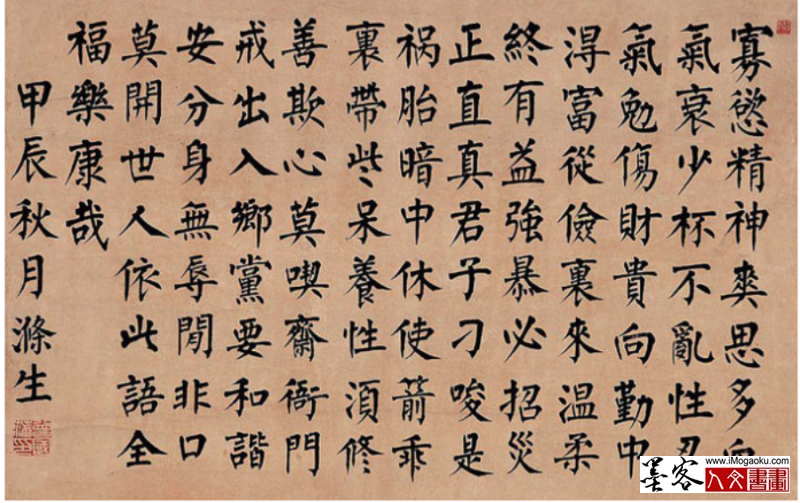 寡慾精神爽思多血
氣衰少杯不亂性忍
氣勉傷財貴向勤中
淂富從儉裏來温柔
終有益強暴必招災
正直真君子刁唆是
祸胎暗中休使箭乖
裏帶些呆養性湏修
善欺心莫喫齋衙門
戒出入鄉黨要和諧
安分身無辱閒非口
莫開世人依此語全
福樂康哉
甲辰秋月滌生
墨客
www.iMogaoku.com
人文書畫